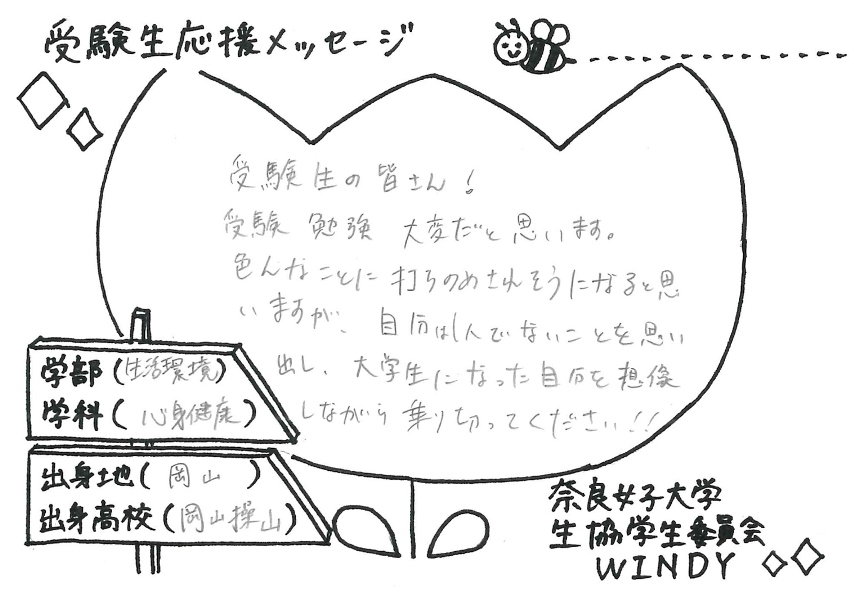 受験生応援メッセージ
受験生の皆さん!
受験勉強 大変だと思います。
色んなことに打ちのめされそうになると思
いますが、自分は1人でないことを思い
出し、大学生になった自分を想像
しながら乗り切ってください!!
学部(生活環境)
学科(心身健康)
出身地(岡山)
出身高校(岡山操山)
奈良女子大学
生協学生委員会
WINDY